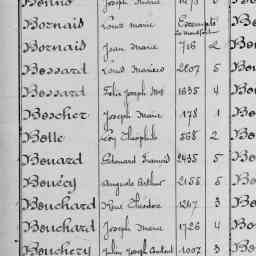 Bornais Louis Marie Exempté
Bornais Jean Marie 716 2 Bo
Bossard Louis Mariero 2807 5 Bo
Bossard Felix Joseph Mie 1635 4 Bo
Boscher Joseph Marie 178 1 Bo
Botte Théophile 568 2 Bo
Bouard Edouard Francois 2435 5 Bo
Bouëcy Auguste Arthur 2155 5 Bo
Bouchard René Theodore 1247 3 Bo
Bouchard Joseph Marie 1726 4 Bo
Bouchery Julien Joseph 1007 3 Bo